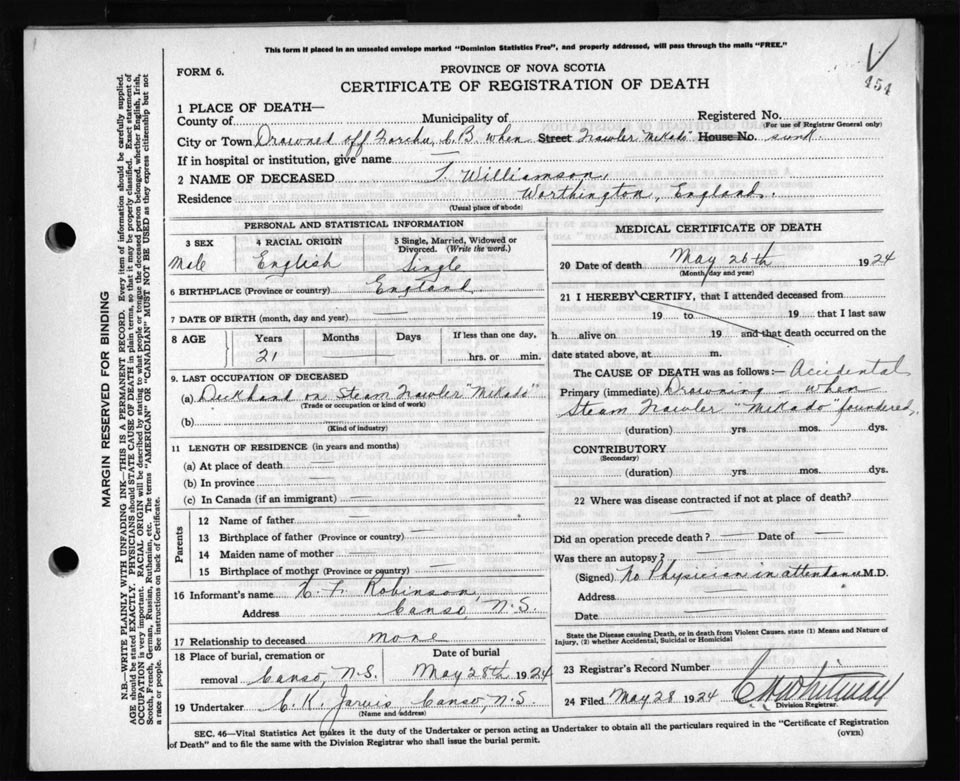 This form if placed in an unsealed envelope marked "Dominion Statistics Free", and properly addressed, will pass through the mails "FREE."
FORM 6.
PROVINCE OF NOVA SCOTIA
CERTIFICATE OF REGISTRATION OF DEATH
454
1 PLACE OF DEATH—
County of Municipality of Registered No.
(For use of Registrar General only)
City or Town Drowned off Forchu, C.B. when Street Trawler "Mikado" House No. sunk
If in hospital or institution, give name —
2 NAME OF DECEASED T. Williamson,
Residence Worthington, England.
(Usual place of abode)
PERSONAL AND STATISTICAL INFORMATION
3 SEX 4 RACIAL ORIGIN 5 Single, Married, Widowed or Divorced. (Write the word.)
Male English Single
6 BIRTHPLACE (Province or country) England
7 DATE OF BIRTH (month, day and year) —
8 AGE Years Months Days If less than one day,
21 — hrs. or min.
9. LAST OCCUPATION OF DECEASED
(a) Deckhand on Steam Trawler "Mikado"
(Trade or occupation or kind of work)
(b)
(Kind of industry)
11 LENGTH OF RESIDENCE (in years and months)
(a) At place of death —
(b) In province —
(c) In Canada (if an immigrant) —
Parents
12 Name of father —
13 Birthplace of father (Province or country) —
14 Maiden name of mother —
15 Birthplace of mother (Province or country) —
16 Informant's name H. F. Robinson,
Address Canso, N.S.
17 Relationship to deceased none
18 Place of burial, cremation or removal Date of burial
Canso, N.S. May 28th 1924
19 Undertaker C. K. Jarvis Canso, N.S.
(Name and address)
MEDICAL CERTIFICATE OF DEATH
20 Date of death May 26th 1924
(Month, day and year)
21 I HEREBY CERTIFY, that I attended deceased from
19 to 19 that I last saw
h alive on 19 and that death occurred on the
date stated above, at m.
The CAUSE OF DEATH was as follows:— Accidental
Primary (immediate) Drowning — when
Steam Trawler "Mikado" foundered,
(duration) yrs. mos. dys.
CONTRIBUTORY —
(Secondary)
(duration) yrs. mos. dys.
22 Where was disease contracted if not at place of death?
—
Did an operation precede death? — Date of —
Was there an autopsy? —
(Signed) No Physician in attendance M.D.
Address —
Date —
State the Disease causing Death, or in death from Violent Causes, state (1) Means and Nature of
Injury, (2) whether Accidental, Suicidal or Homicidal
23 Registrar's Record Number
24 Filed May 28 1924 C. H. Whitman
Division Registrar.
SEC. 46—Vital Statistics Act makes it the duty of the Undertaker or person acting as Undertaker to obtain all the particulars required in the "Certificate of Registration
of Death" and to file the same with the Division Registrar who shall issue the burial permit.
(OVER)
MARGIN RESERVED FOR BINDING
N.B.—WRITE PLAINLY WITH UNFADING INK—THIS IS A PERMANENT RECORD. Every item of information should be carefully supplied.
AGE should be stated EXACTLY. PHYSICIANS should STATE CAUSE OF DEATH in plain terms, so that it may be properly classified. Exact statement of
OCCUPATION is very important. RACIAL ORIGIN will be described by stating to what people or tongue the deceased person belonged, whether English, Irish,
Scotch, French, German, Russian, Ruthenian, etc. The terms "AMERICAN" or "CANADIAN" MUST NOT BE USED as they express citizenship but not
a race or people. See instructions on back of Certificate.